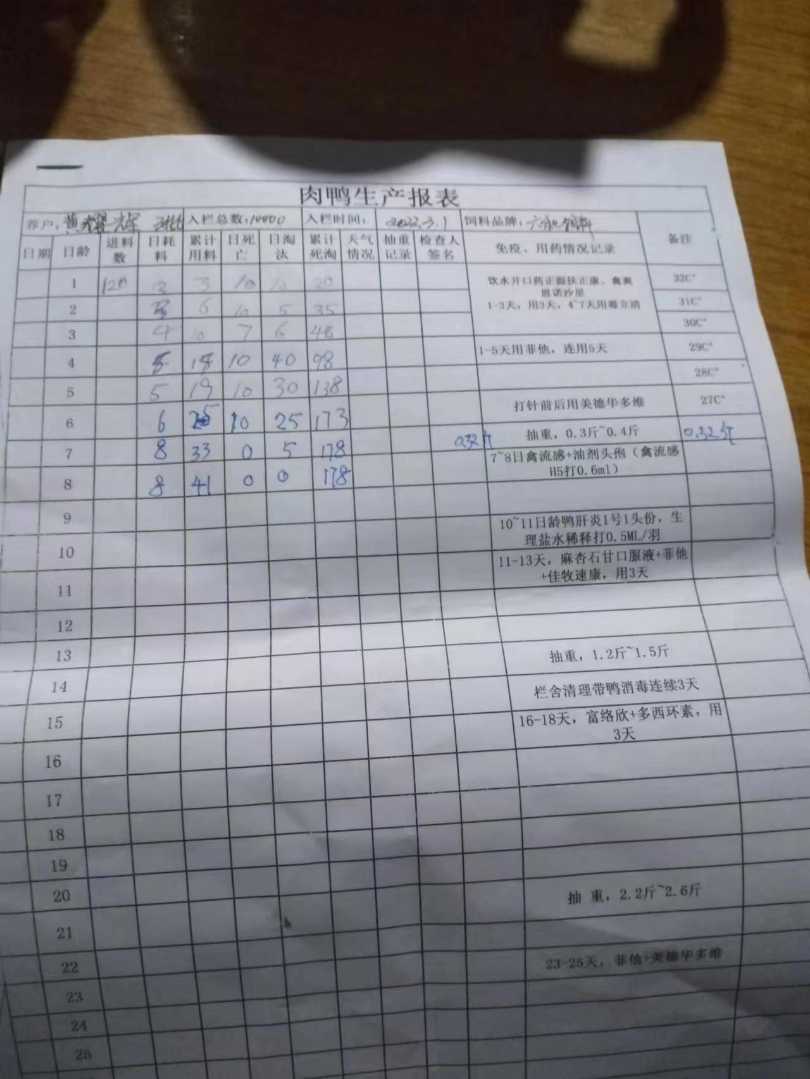 肉鸭生产报表
养户: 黄 辉 入栏总数: 10400 入栏时间: 2022.3.1 饲料品牌:
日期 日龄 进料数 日耗料 累计用料 日死亡 日淘汰 累计死淘 天气情况 抽重记录 检查人签名 免疫、用药情况记录 备注
1 120 3 3 10 10 20 饮水开口药正源扶正康、禽爽 恩诺沙星 32C°
2 3 6 10 5 35 1-3天,用3天,4~7天用 31C°
3 4 10 7 6 48 30C°
4 5 15 10 40 98 1-5天用菲他,连用5天 29C°
5 5 19 10 30 138 28C°
6 6 25 10 25 173 打针前后用美德华多维 27C°
7 8 33 0 5 178 0.32斤 抽重,0.3斤~0.4斤 0.32斤
8 8 41 0 0 178 7~8日禽流感+油剂头孢(禽流感H5打0.6ml)
9
10 10~11日龄鸭肝炎1号1头份,生理盐水稀释打0.5ML/羽
11 11-13天,麻杏石甘口服液+菲他+佳牧速康,用3天
12
13 抽重,1.2斤~1.5斤
14 栏舍清理带鸭消毒连续3天
15 16-18天,富络欣+多西环素,用3天
16
17
18
19
20 抽 重,2.2斤~2.6斤
21
22 23-25天,菲他+美德华多维
23
24
25